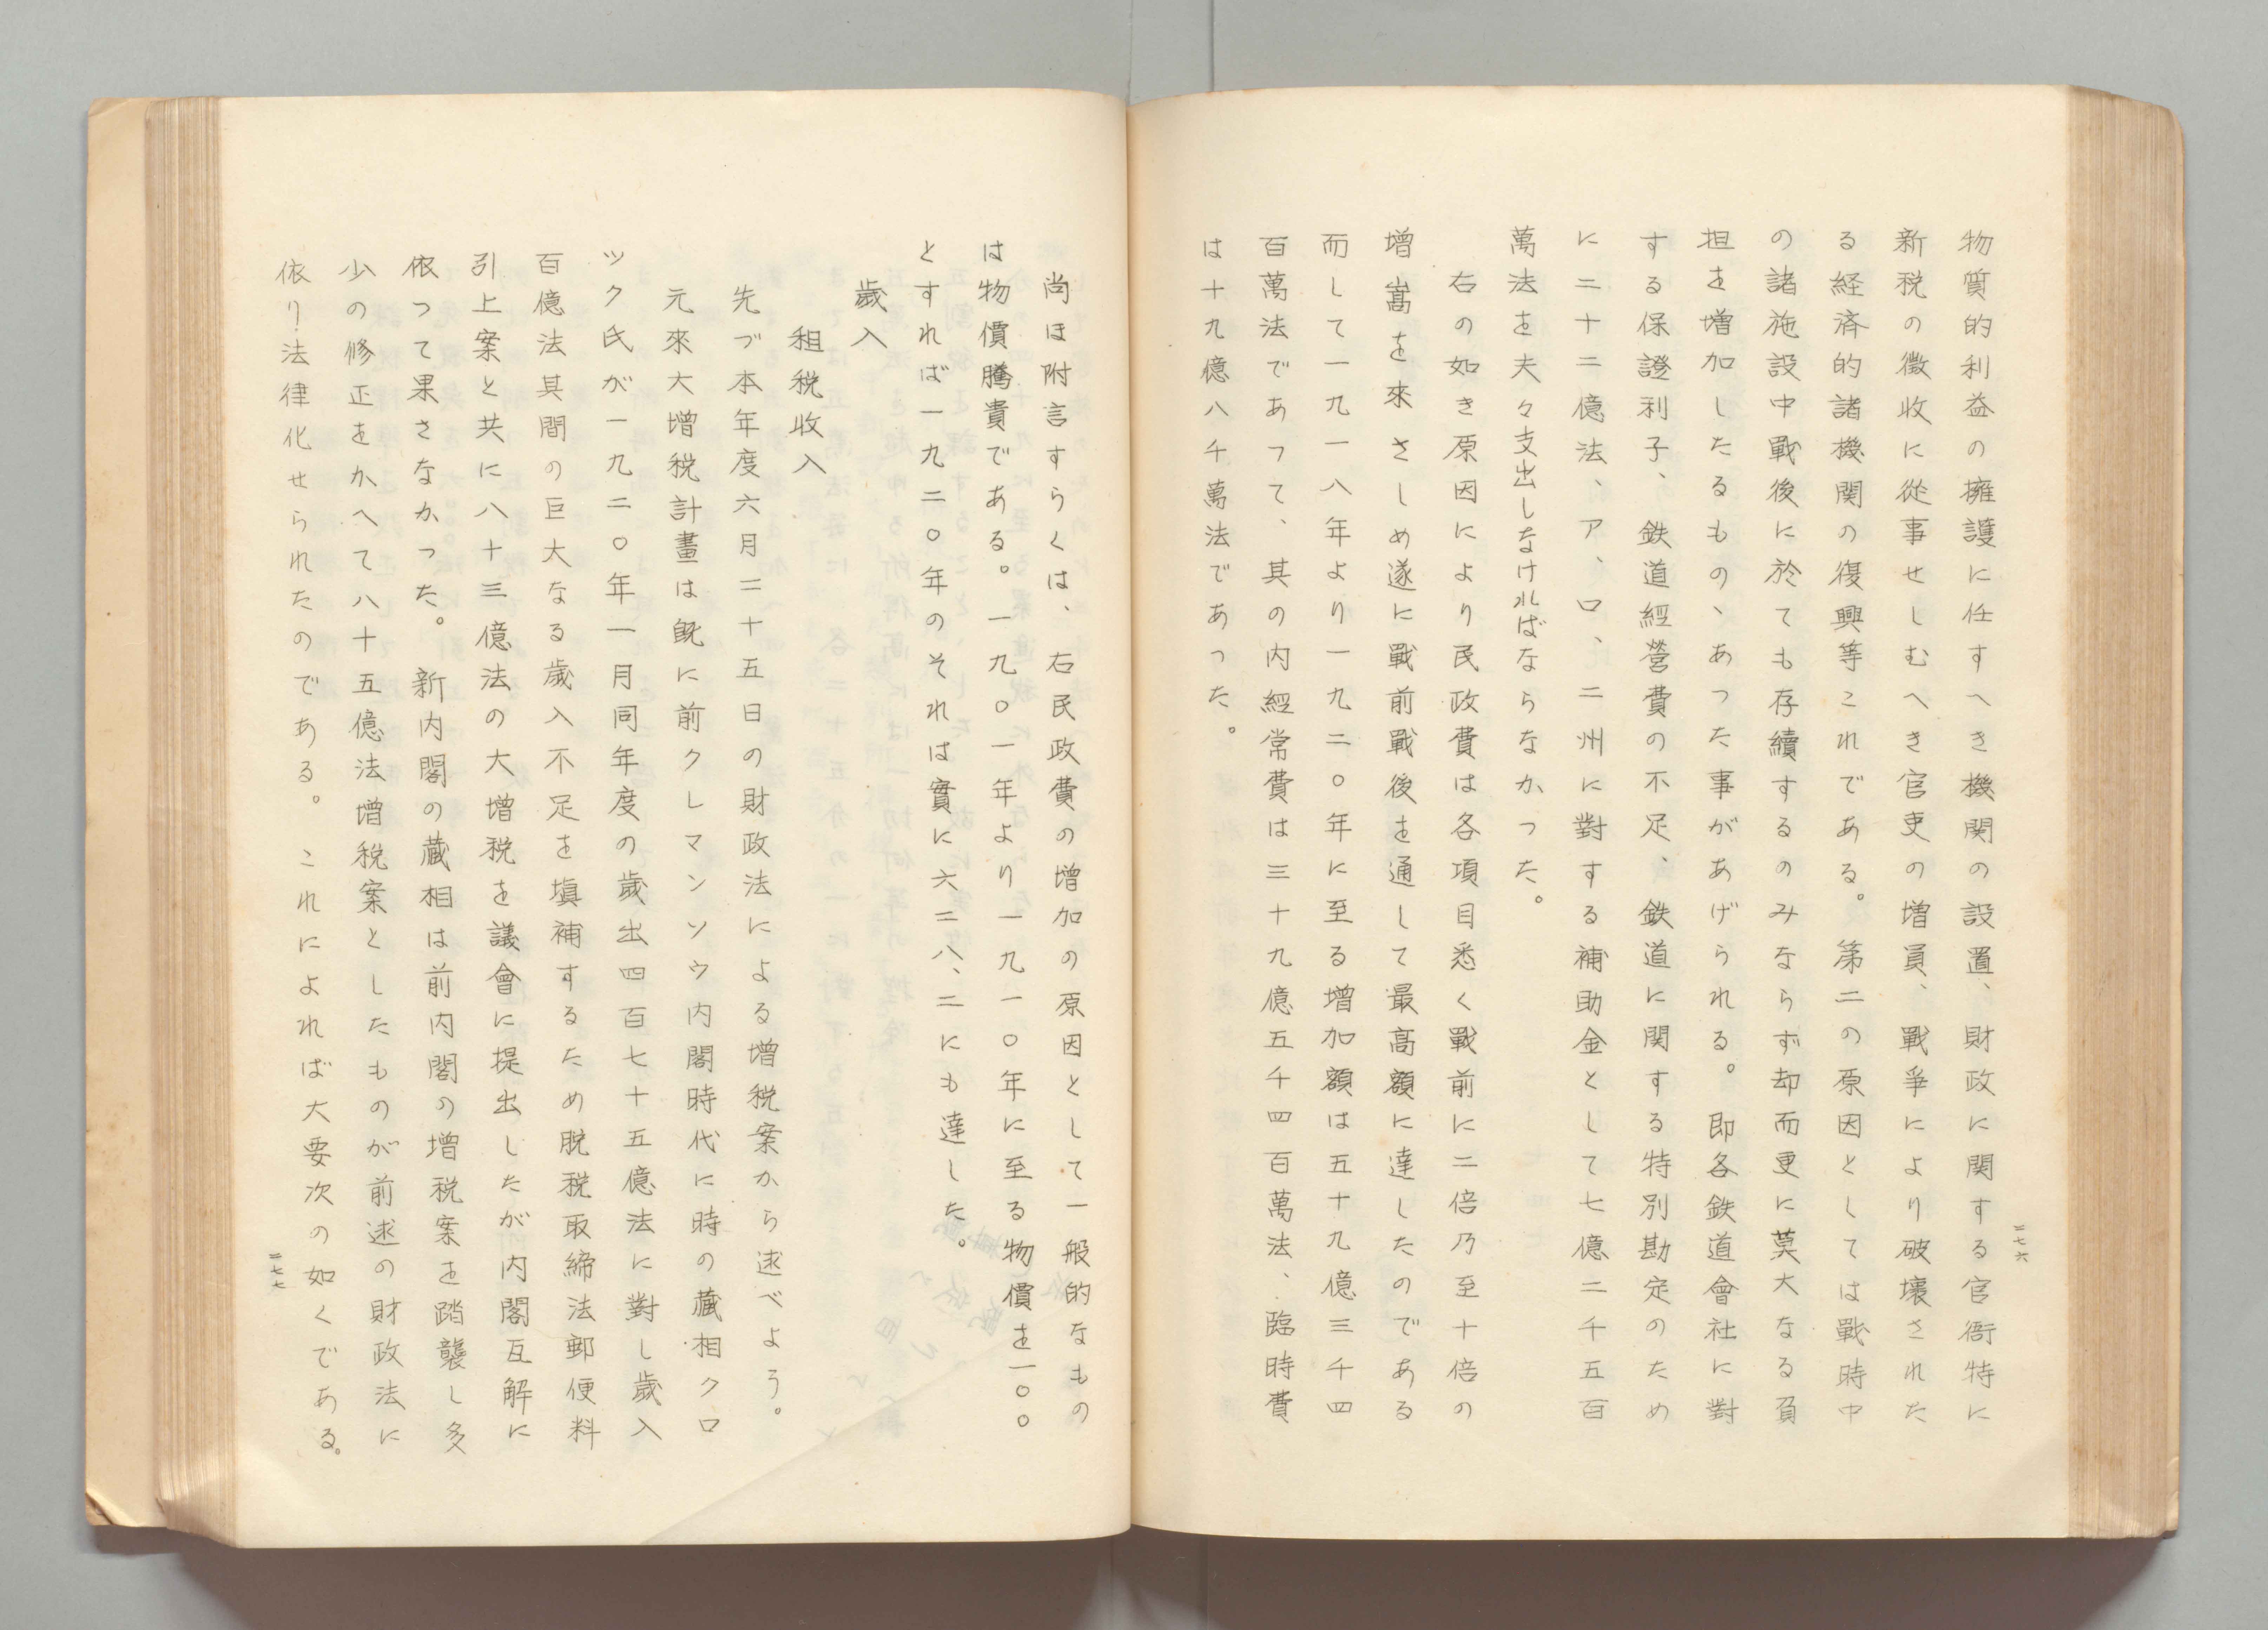 二七六
物質的利益の擁護に任すへき機関の設置、財政に関する官衙特に
新税の徴收に從事せしむへき官吏の増員、戰爭により破壞された
る経済的諸機関の復興等これである。第二の原因としては戰時中
の諸施設中戰後に於ても存續するのみならず却而更に莫大なる負
担を増加したるもの、あった事があげられる。即各鉄道會社に對
する保證利子、鉄道經營費の不足、鉄道に関する特別勘定のため
に二十二億法、ア、ロ、二州に對する補助金として七億二千五百
萬法を夫々支出しなければならなかった。
右の如き原因により民政費は各項目悉く戰前に二倍乃至十倍の
増嵩を來さしめ遂に戰前戰後を通して最高額に達したのである
而して一九一八年より一九二〇年に至る増加額は五十九億三千四
百萬法であって、其の内經常費は三十九億五千四百萬法、臨時費
は十九億八千萬法であった。
尚ほ附言すらくは、右民政費の増加の原因として一般的なもの
は物價騰貴である。一九〇一年より一九一〇年に至る物價を一〇〇
とすれば一九二〇年のそれは實に六二八、二にも達した。
歲入
租税收入
先づ本年度六月二十五日の財政法による増税案から逑べよう。
元來大增税計畫は既に前クレマンソウ内閣時代に時の藏相クロ
ツク氏が一九二〇年一月同年度の歲出四百七十五億法に對し歲入
百億法其間の巨大なる歲入不足を塡補するため脱税取締法郵便料
引上案と共に八十三億法の大增税を議會に提出したが内閣瓦解に
依つて果さなかった。新内閣の藏相は前内閣の増税案を踏襲し多
少の修正をかへて八十五億法増税案としたものが前逑の財政法に
依り法律化せられたのである。これによれば大要次の如くである。
二七七